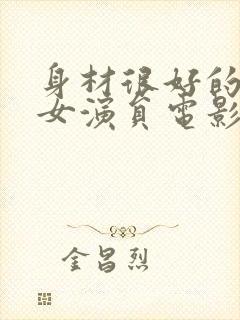 身材很好的
女演员电影
金昌烈